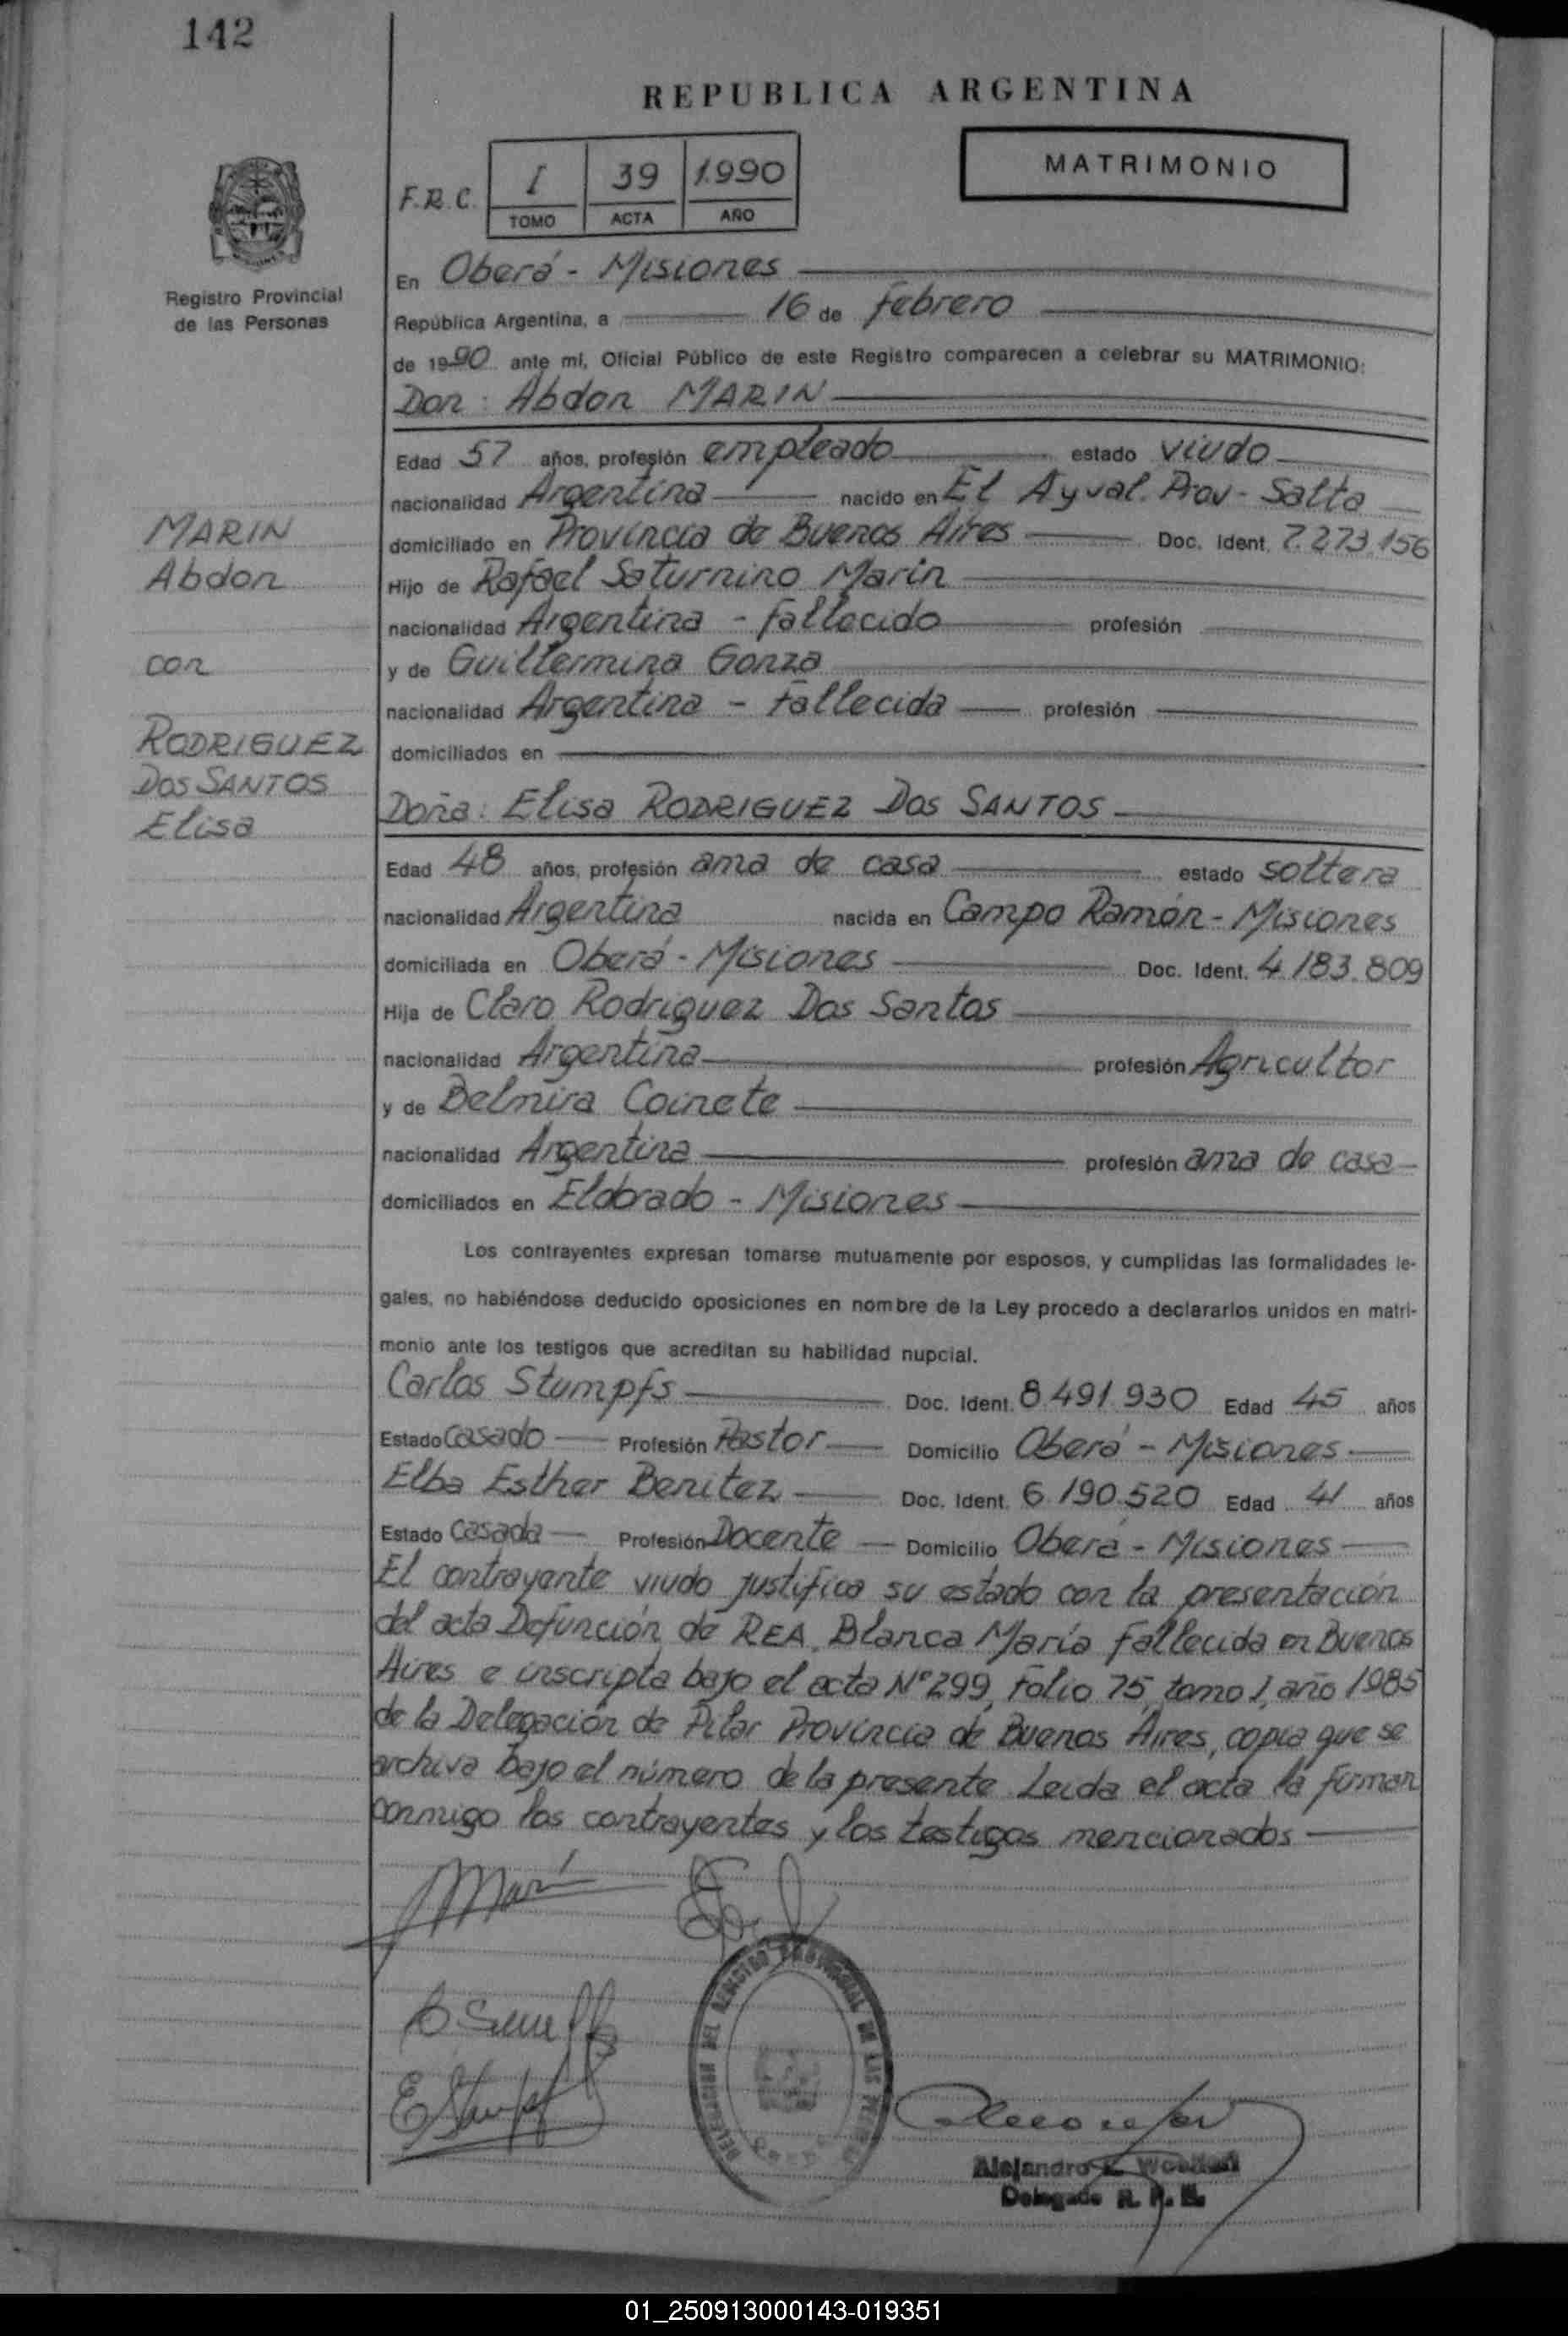 142
REPUBLICA ARGENTINA
MATRIMONIO
F.R.C. I 39 1.990
TOMO ACTA AÑO
Registro Provincial
de las Personas
En Oberá - Misiones
República Argentina, a 16 de febrero
de 1990 ante mí, Oficial Público de este Registro comparecen a celebrar su MATRIMONIO:
Don: Abdon MARIN
Edad 57 años, profesión empleado estado viudo
nacionalidad Argentina nacido en El Ayval. Prov- Salta
domiciliado en Provincia de Buenos Aires Doc. Ident. 7.273.156
Hijo de Rafael Saturnino Marin
nacionalidad Argentina - fallecido profesión
y de Guillermina Gonza
nacionalidad Argentina - Fallecida profesión
domiciliados en
MARIN
Abdon
con
RODRIGUEZ
Dos SANTOS
Elisa
Doña: Elisa RODRIGUEZ Dos SANTOS
Edad 48 años, profesión ama de casa estado soltera
nacionalidad Argentina nacida en Campo Ramón - Misiones
domiciliada en Oberá - Misiones Doc. Ident. 4.183.809
Hija de Claro Rodriguez Dos Santos
nacionalidad Argentina profesión Agricultor
y de Belmira Coinete
nacionalidad Argentina profesión ama de casa
domiciliados en Eldorado - Misiones
Los contrayentes expresan tomarse mutuamente por esposos, y cumplidas las formalidades le-
gales, no habiéndose deducido oposiciones en nombre de la Ley procedo a declararlos unidos en matri-
monio ante los testigos que acreditan su habilidad nupcial.
Carlos Stumpfs Doc. Ident. 8.491.930 Edad 45 años
Estado Casado Profesión Pastor Domicilio Oberá - Misiones
Elba Esther Benitez Doc. Ident. 6.190.520 Edad 41 años
Estado casada Profesión Docente Domicilio Oberá - Misiones
El contrayente viudo justifica su estado con la presentación
del acta Defunción de REA, Blanca María fallecida en Buenos
Aires e inscripta bajo el acta Nº 299, Folio 75, tomo 1, año 1985
de la Delegación de Pilar Provincia de Buenos Aires, copia que se
archiva bajo el número de la presente. Leida el acta la firman
conmigo los contrayentes y los testigos mencionados
Marin
E Stumpf
DELEGACION DEL REGISTRO PROVINCIAL DE LAS
Alejandro
Delegado R. P. P.
01_250913000143-019351